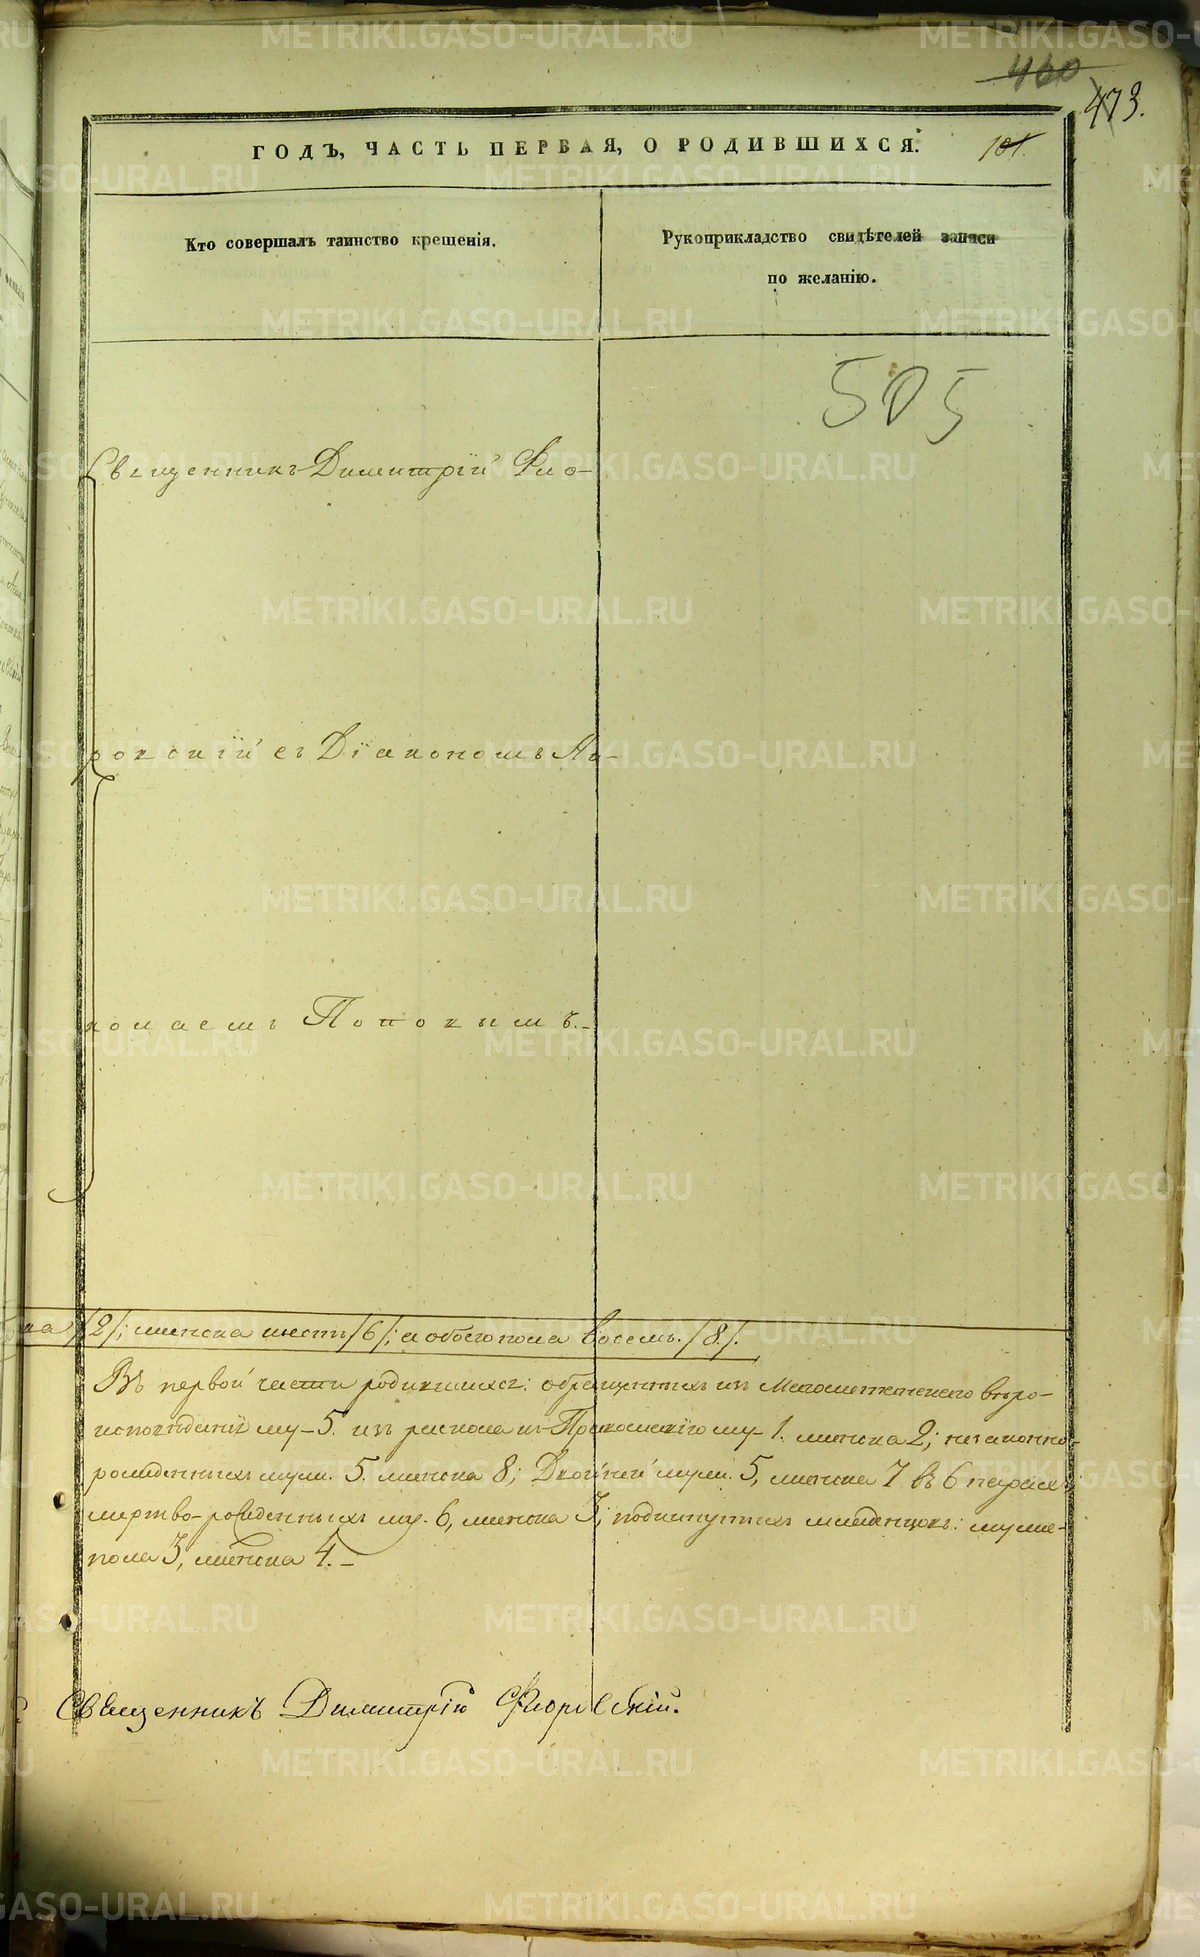 460
473.
ГОДЪ, ЧАСТЬ ПЕРВАЯ, О РОДИВШИХСЯ.
101.
Кто совершалъ таинство крещенія.
Рукоприкладство свидѣтелей записи
по желанію.
505
Священникъ Димитрій Фло-
ровскій съ Діакономъ Ни-
колаемъ Поповымъ.-
ка /2/; женска шесть /6/; а обоего пола восемь. /8/.
Въ первой части родившихся: обращенныхъ изъ Магометанского вѣро-
исповѣданія му- 5. изъ раскола къ Православію му- 1. женска 2; незаконно-
рожденныхъ муж. 5. женска 8; Двойней муж. 5, женска 7 въ 6 парахъ;
мертво-рожденныхъ му. 6, женска 3; подкинутыхъ младенцовъ: муже-
пола 3, женска 4.-
Священникъ Димитрій Флоровскій.
METRIKI.GASO-URAL.RU